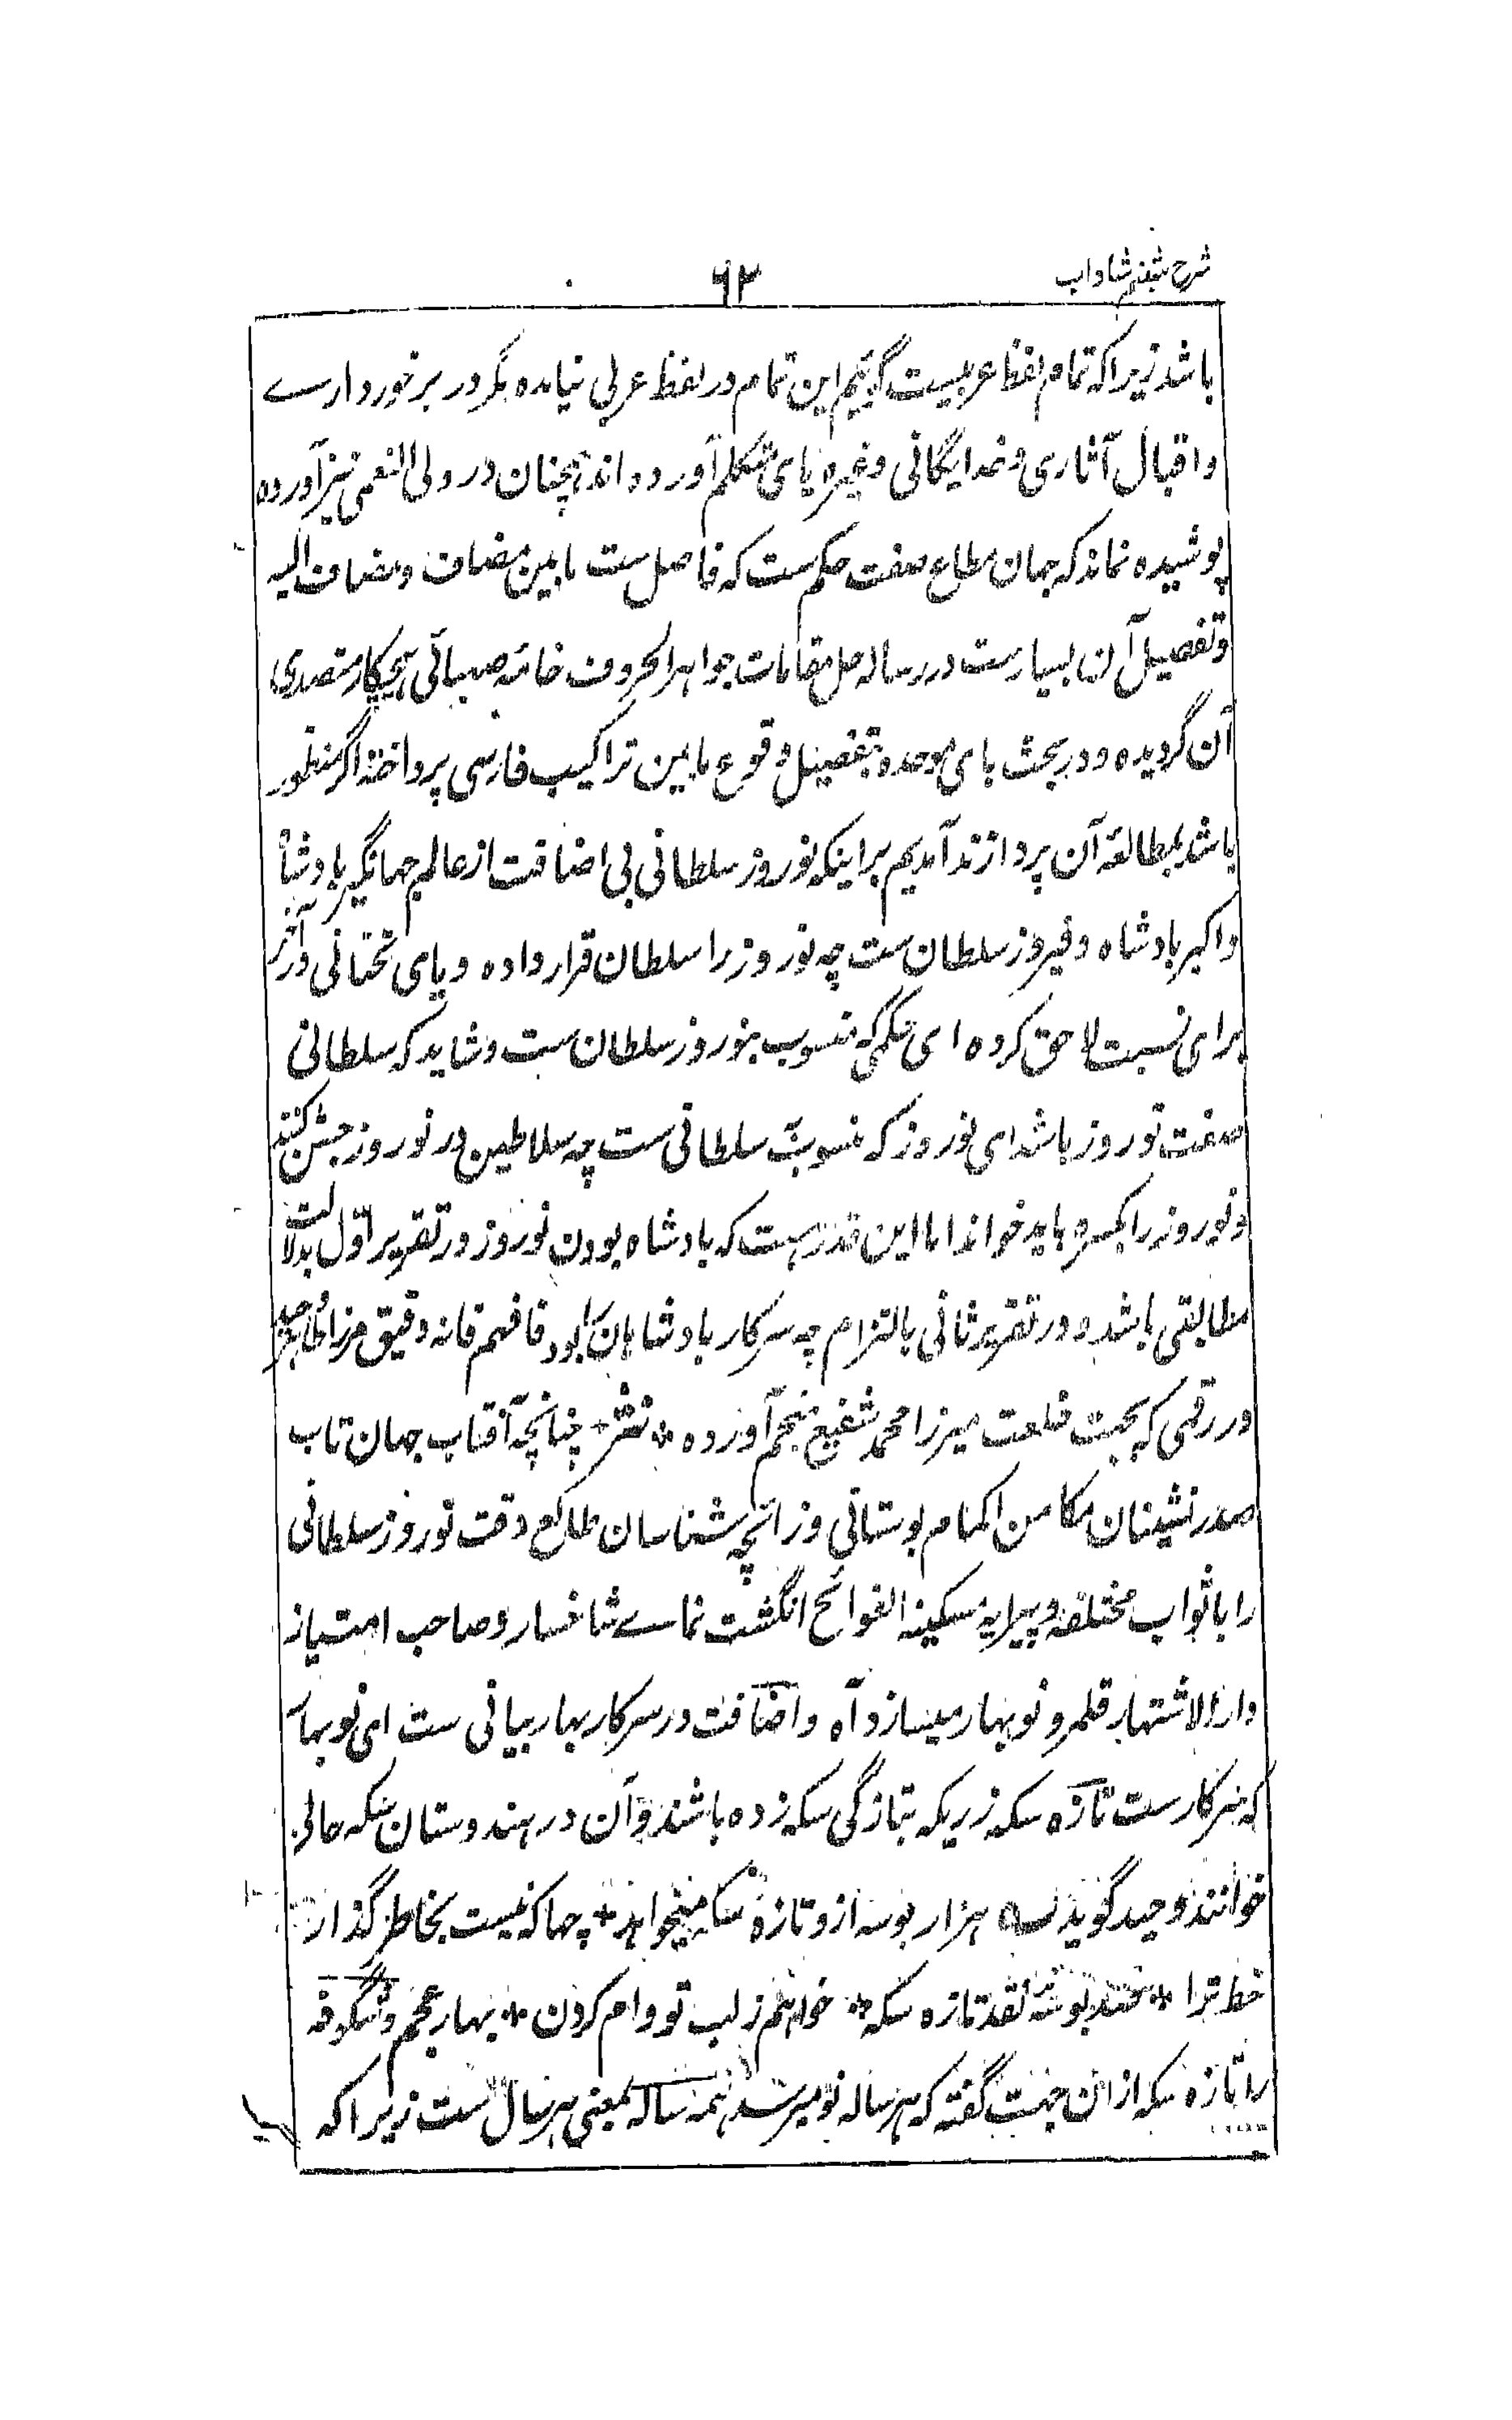 شرح شبنم شاداب
۶۲
باشد زیراکه تمام لفظ عربیست گوئیم این تمام در لفظ عربی نیامده مگر در برخوردارے
و اقبال آثاری و خدایگانی و غیره یای متکلم آورده اند همچنان در ولی النعمی نیز آورده
پوشیده نماند که جهان مطاع صفت حکم ست که فاصل ست مابین مضاف و مضاف الیه
و تفصیل آن بسیارست در رساله حل مقامات جواهر الحروف خامه صهبائی هیچکار متصدی
آن گردیده و در بحث بای موحده بتفصیل وقوع مابین تراکیب فارسی پرداخته اگر منظور
باشد بمطالعه آن پردازند آمدیم بر اینکه نوروز سلطانی بی اضافت از عالم جهانگیر بادشاه
و اکبر بادشاه و فیروز سلطان ست چه نوروز را سلطان قرار داده و یای تحتانی در آخر
برای نسبت لاحق کرده ای حکمی که منسوب بنوروز سلطان ست و شاید که سلطانی
صفت نوروز باشد ای نوروز که منسوب بسلطانی ست چه سلاطین در نوروز جشن کنند
و نوروز را بکسره باید خواند اما این قدر هست که بادشاه بودن نوروز در تقریر اول بدلالت
مطابقی باشد و در تقریر ثانی بالتزام چه سرکار بادشاهان را بود فافهم فانه دقیق مرزا طاهر وحید
در رقمی که بجهت خلعت میرزا محمد شفیع منجم آورده * نثر * چنانچه آفتاب جهان تاب
صدر نشینان مکامن اکمام بوستانی و زائچه شناسان طالع وقت نوروز سلطانی
را باثواب مختلفه و پیرایه مسکینه الفوائح انگشت نماے شاخسار و صاحب امتیاز
دار الاشتهار قلمرو نوبهار میسازد آه و اضافت در سرکار بهار بیانی ست ای نوبهار
که سرکارست تازه سکه زریکه بتازگی سکه زده باشند و آن در هندوستان سکه حالی
خوانند وحید گوید ؎ هزار بوسه ازو تازه سکه میخواهد * چها که نیست بخاطر گذار
خط ترا * صد بوسه نقد تازه سکه * خواهم ز لب تو وام کردن * بهار عجم و شگوفه
را تازه سکه ازان جهت گفته که هر ساله نو میرسد همه ساله بمعنی هر سال ست زیراکه